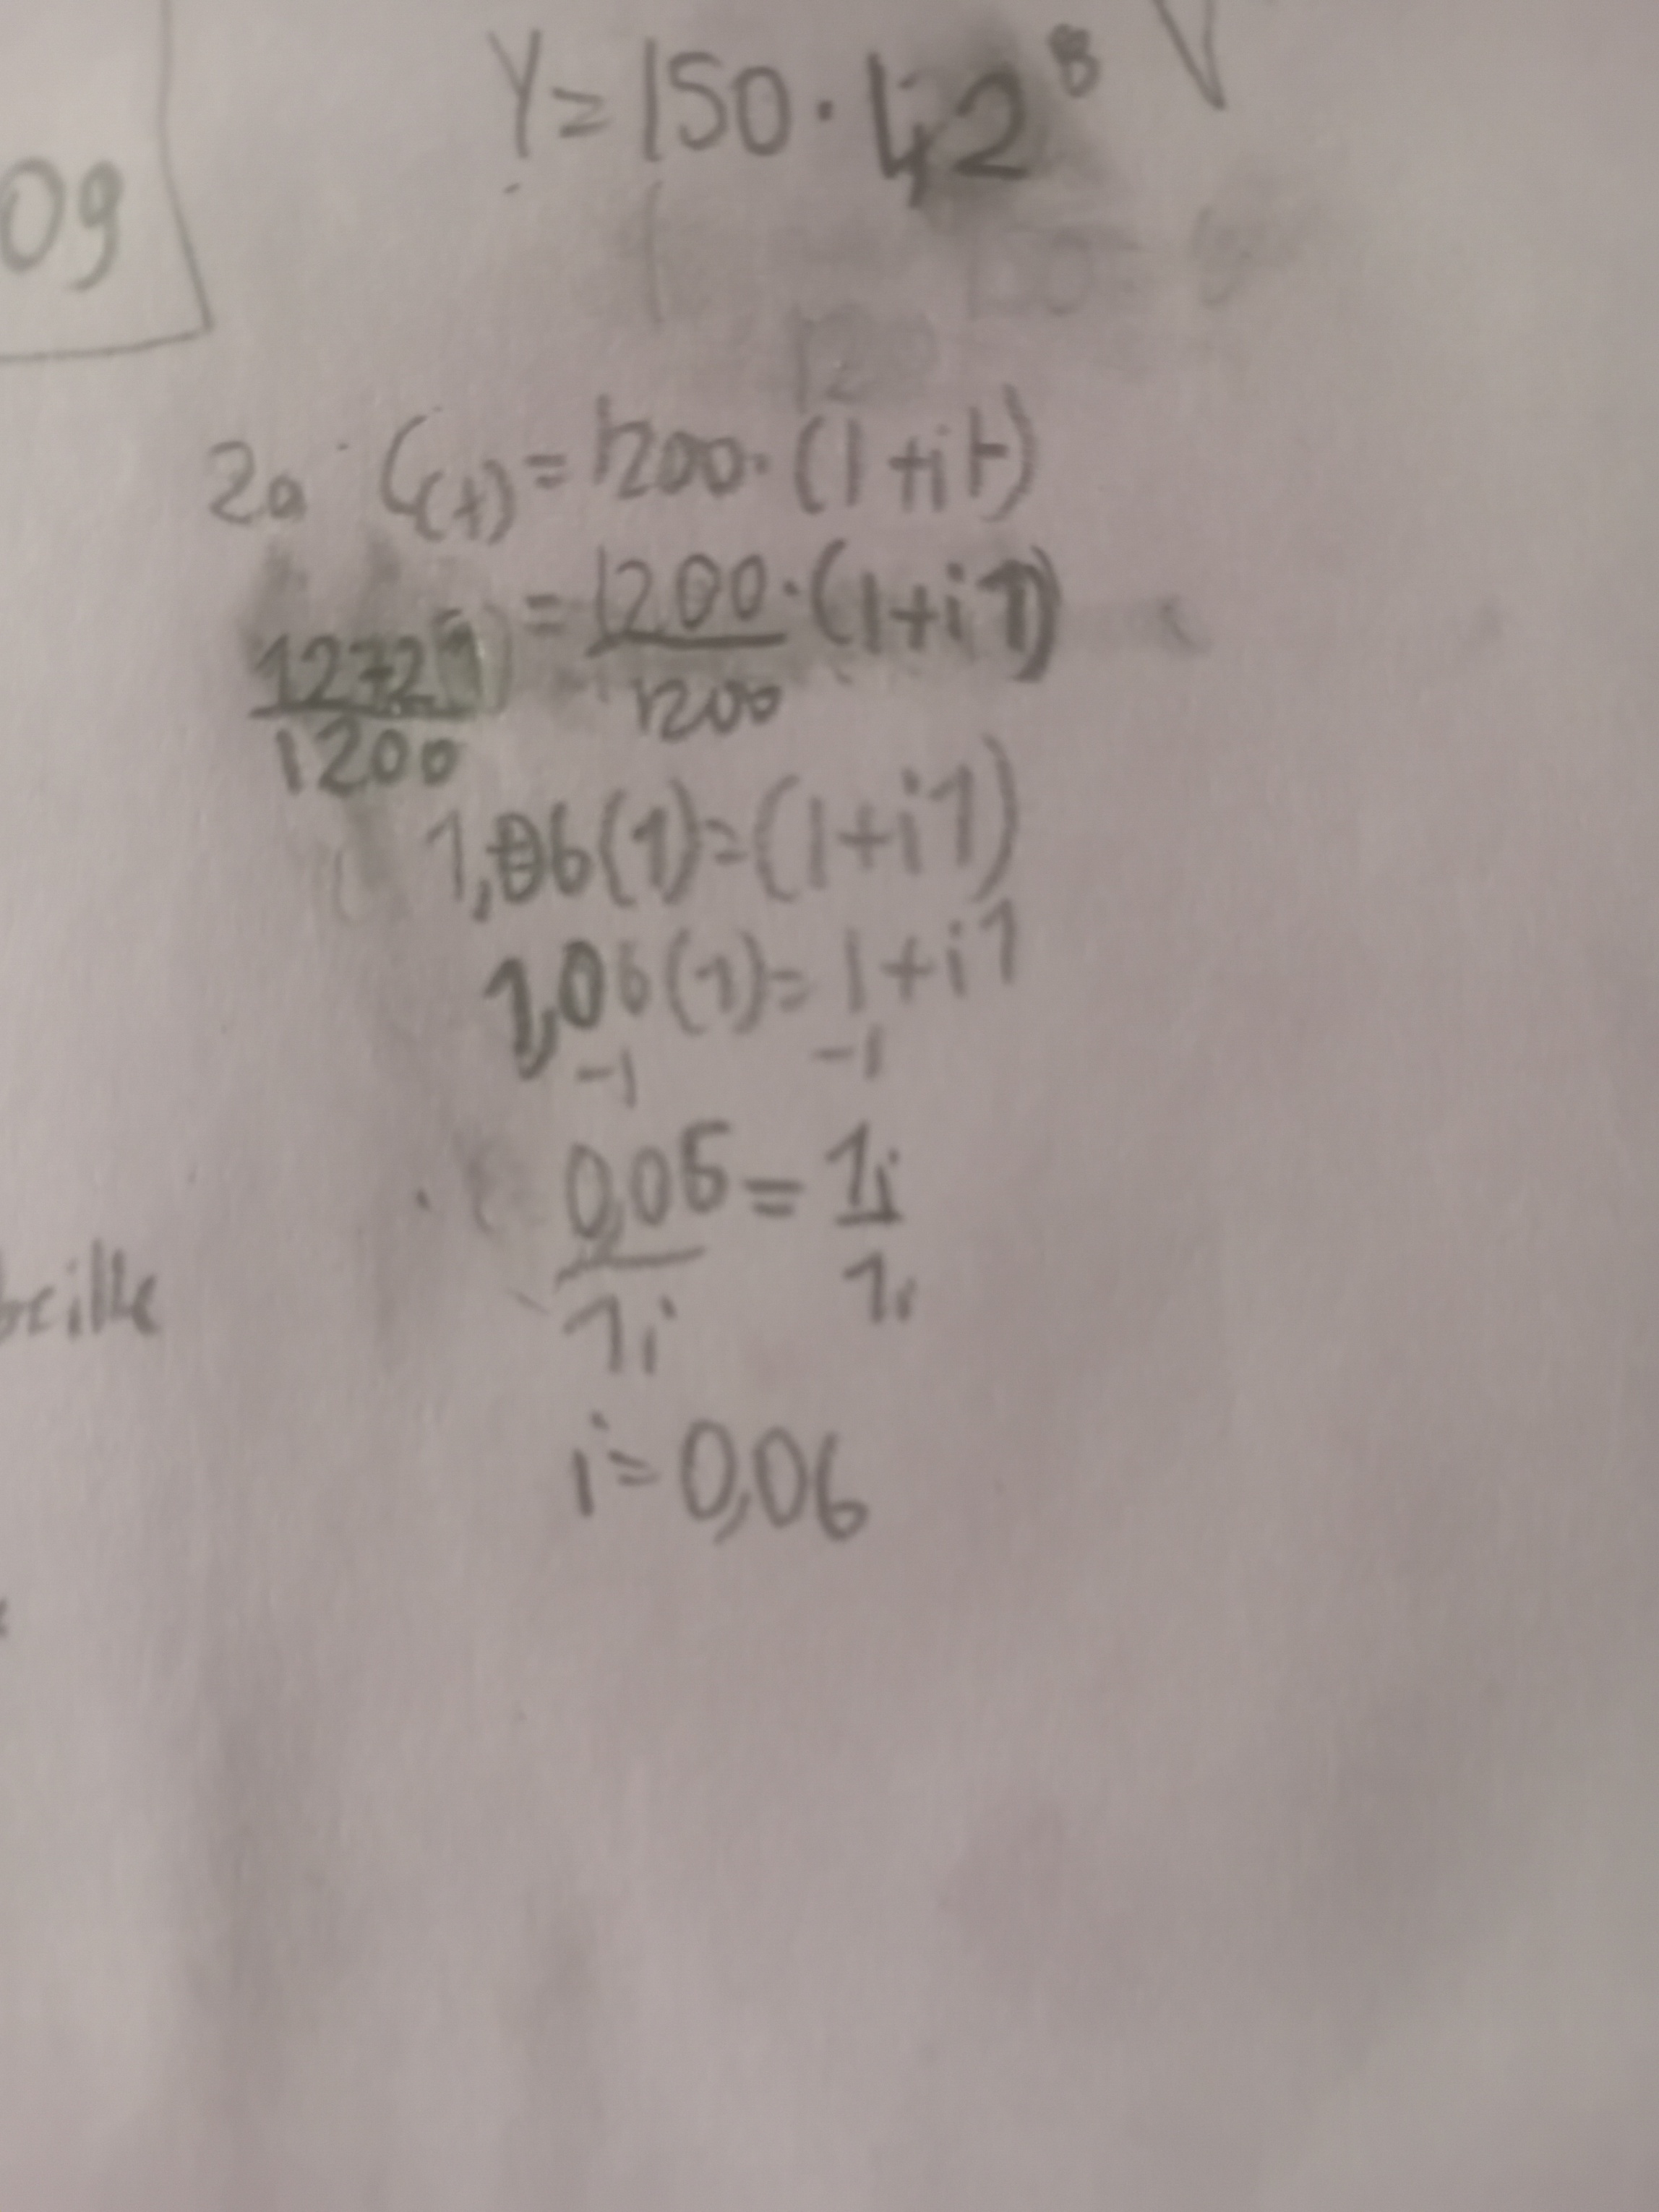 Y=150·1,2⁸
09
2a C(t)=1200·(1+it)
1272(1)/1200 = 1200/1200·(1+i1)
1,06(1)=(1+i1)
1,06(1)=1+i1
-1 -1
0,06/1i = 1i/1i
i=0,06